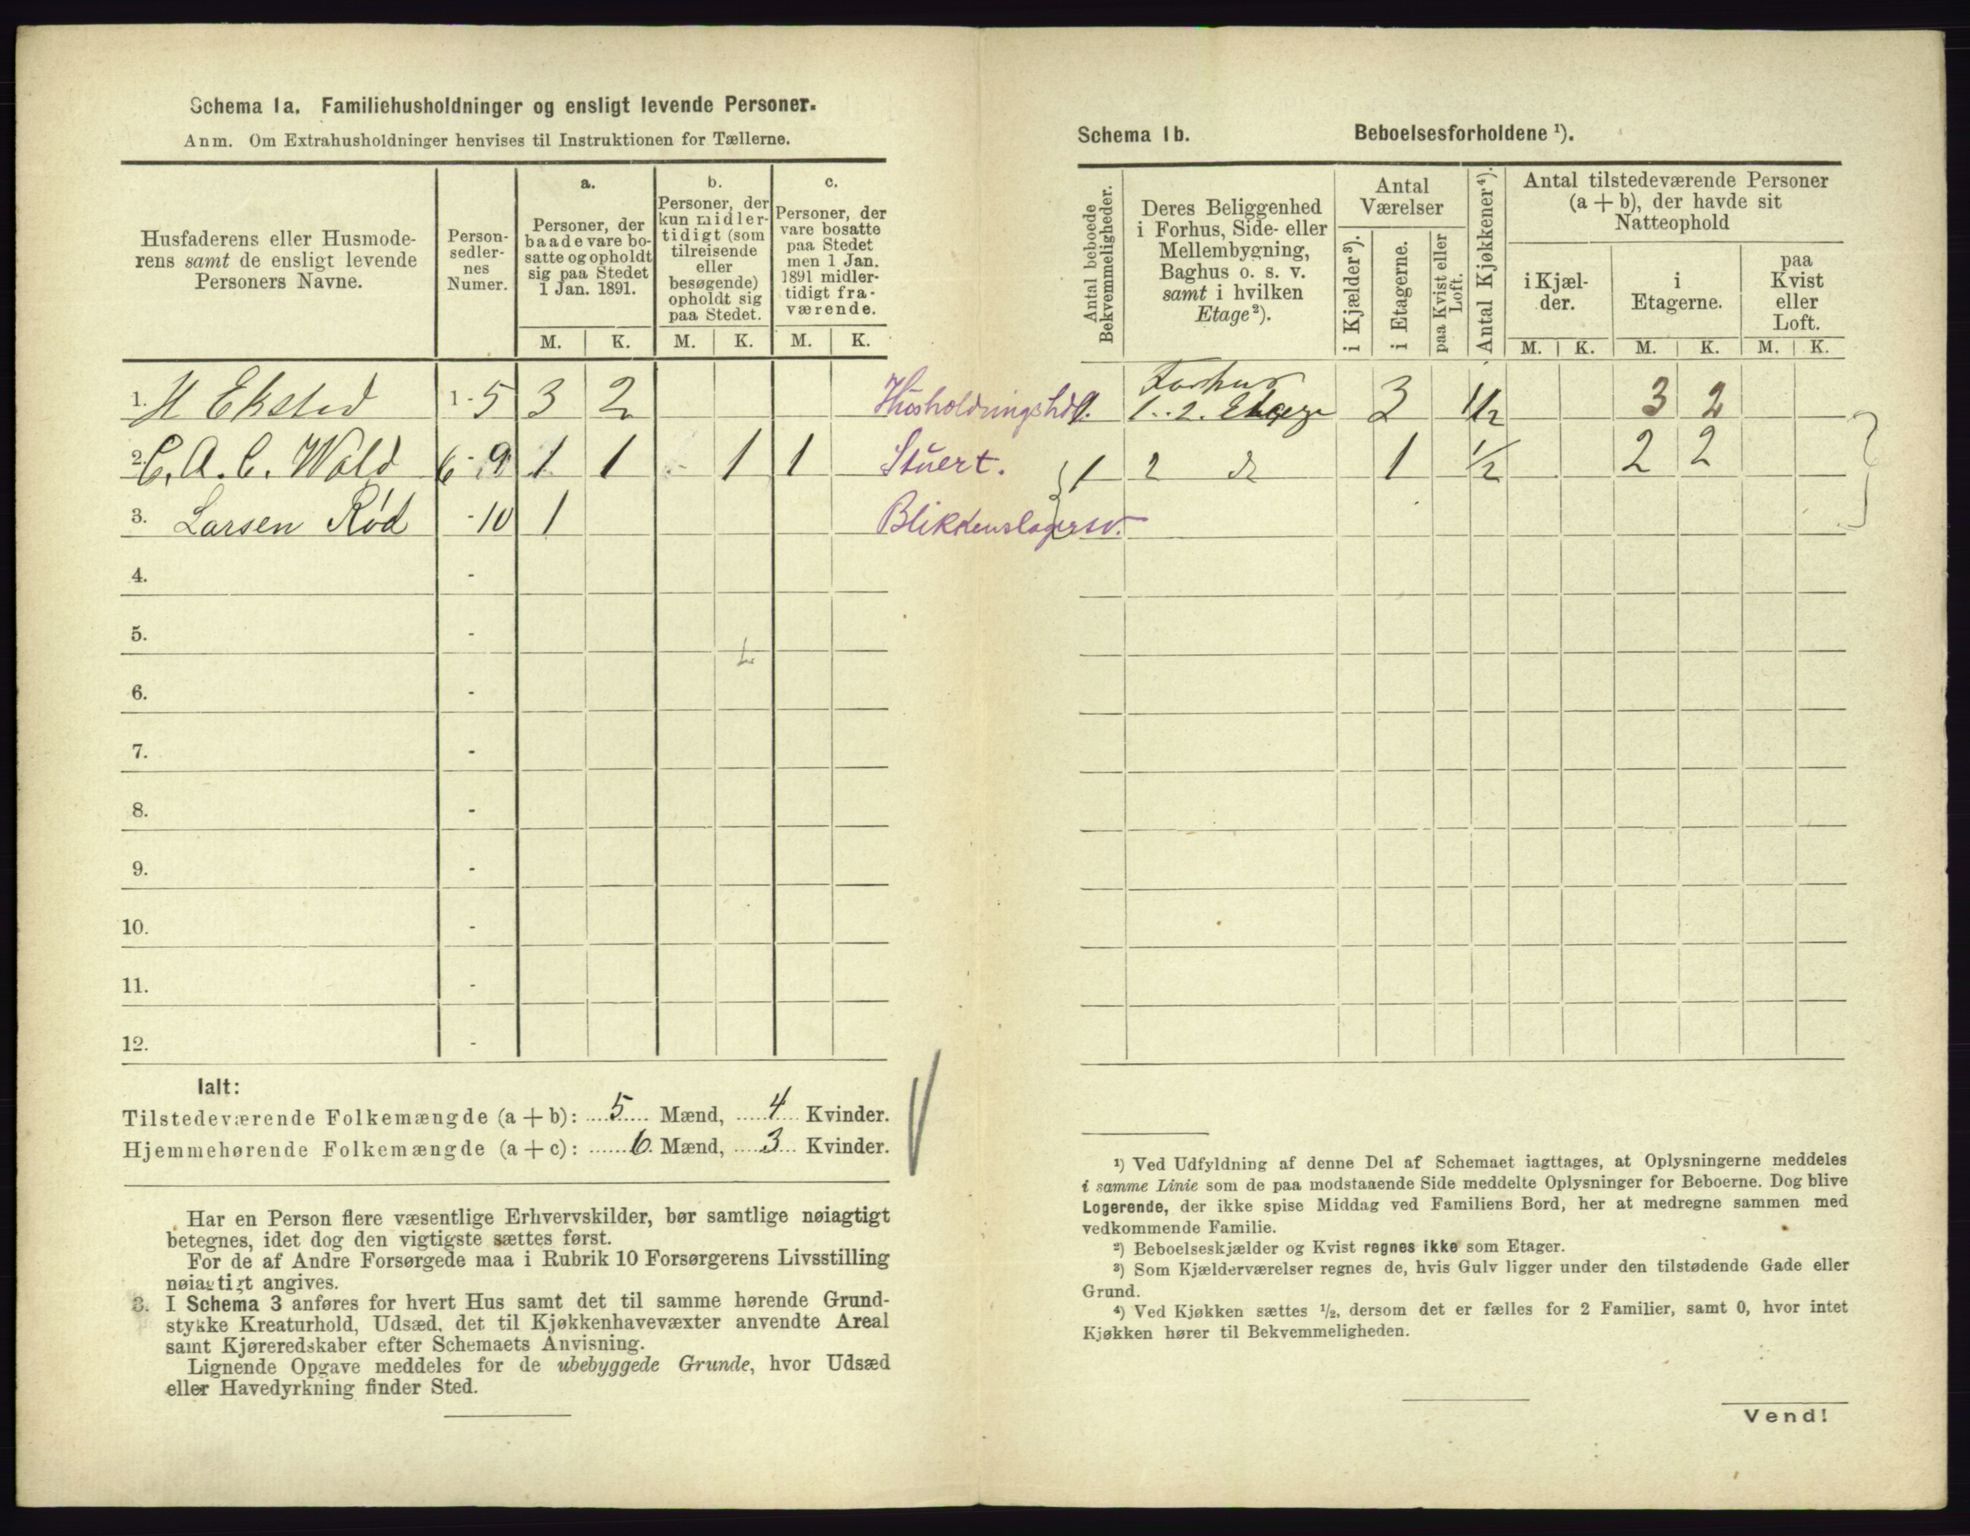 Schema 1a. Familiehusholdninger og ensligt levende Personer.
Anm. Om Extrahusholdninger henvises til Instruktionen for Tællerne.
Husfaderens eller Husmode-
rens samt de ensligt levende
Personers Navne.
Person-
sedler-
nes
Numer.
a.
Personer, der
baade vare bo-
satte og opholdt
sig paa Stedet
1 Jan. 1891.
b.
Personer, der
kun midler-
tidigt (som
tilreisende
eller
besøgende)
opholdt sig
paa Stedet.
c.
Personer, der
vare bosatte
paa Stedet
men 1 Jan.
1891 midler-
tidigt fra-
værende.
M. K. M. K. M. K.
1. H Eksted 1-5 3 2 Husholdningshdl.
2. C. A. C. Wold 6-9 1 1 1 1 Stuert.
3. Larsen Rød -10 1 Blikkenslagersv.
4. -
5. -
6. -
7. -
8. -
9. -
10. -
11. -
12. -
Ialt:
Tilstedeværende Folkemængde (a + b): 5 Mænd, 4 Kvinder.
Hjemmehørende Folkemængde (a + c): 6 Mænd, 3 Kvinder.
Har en Person flere væsentlige Erhvervskilder, bør samtlige nøiagtigt
betegnes, idet dog den vigtigste sættes først.
For de af Andre Forsørgede maa i Rubrik 10 Forsørgerens Livsstilling
nøiagtigt angives.
3. I Schema 3 anføres for hvert Hus samt det til samme hørende Grund-
stykke Kreaturhold, Udsæd, det til Kjøkkenhavevæxter anvendte Areal
samt Kjøreredskaber efter Schemaets Anvisning.
Lignende Opgave meddeles for de ubebyggede Grunde, hvor Udsæd
eller Havedyrkning finder Sted.
Schema 1b. Beboelsesforholdene ¹).
Antal beboede
Bekvemmeligheder.
Deres Beliggenhed
i Forhus, Side- eller
Mellembygning,
Baghus o. s. v.
samt i hvilken
Etage²).
Antal
Værelser
i Kjælder³).
i Etagerne.
paa Kvist eller
Loft.
Antal Kjøkkener⁴).
Antal tilstedeværende Personer
(a + b), der havde sit
Natteophold
i Kjæl-
der.
i
Etagerne.
paa
Kvist
eller
Loft.
M. K. M. K. M. K.
Forhus
1. 2. Etage 3 1/2 3 2
1 2 do 1 1/2 2 2
¹) Ved Udfyldning af denne Del af Schemaet iagttages, at Oplysningerne meddeles
i samme Linie som de paa modstaaende Side meddelte Oplysninger for Beboerne. Dog blive
Logerende, der ikke spise Middag ved Familiens Bord, her at medregne sammen med
vedkommende Familie.
²) Beboelseskjælder og Kvist regnes ikke som Etager.
³) Som Kjælderværelser regnes de, hvis Gulv ligger under den tilstødende Gade eller
Grund.
⁴) Ved Kjøkken sættes ½, dersom det er fælles for 2 Familier, samt 0, hvor intet
Kjøkken hører til Bekvemmeligheden.
Vend!